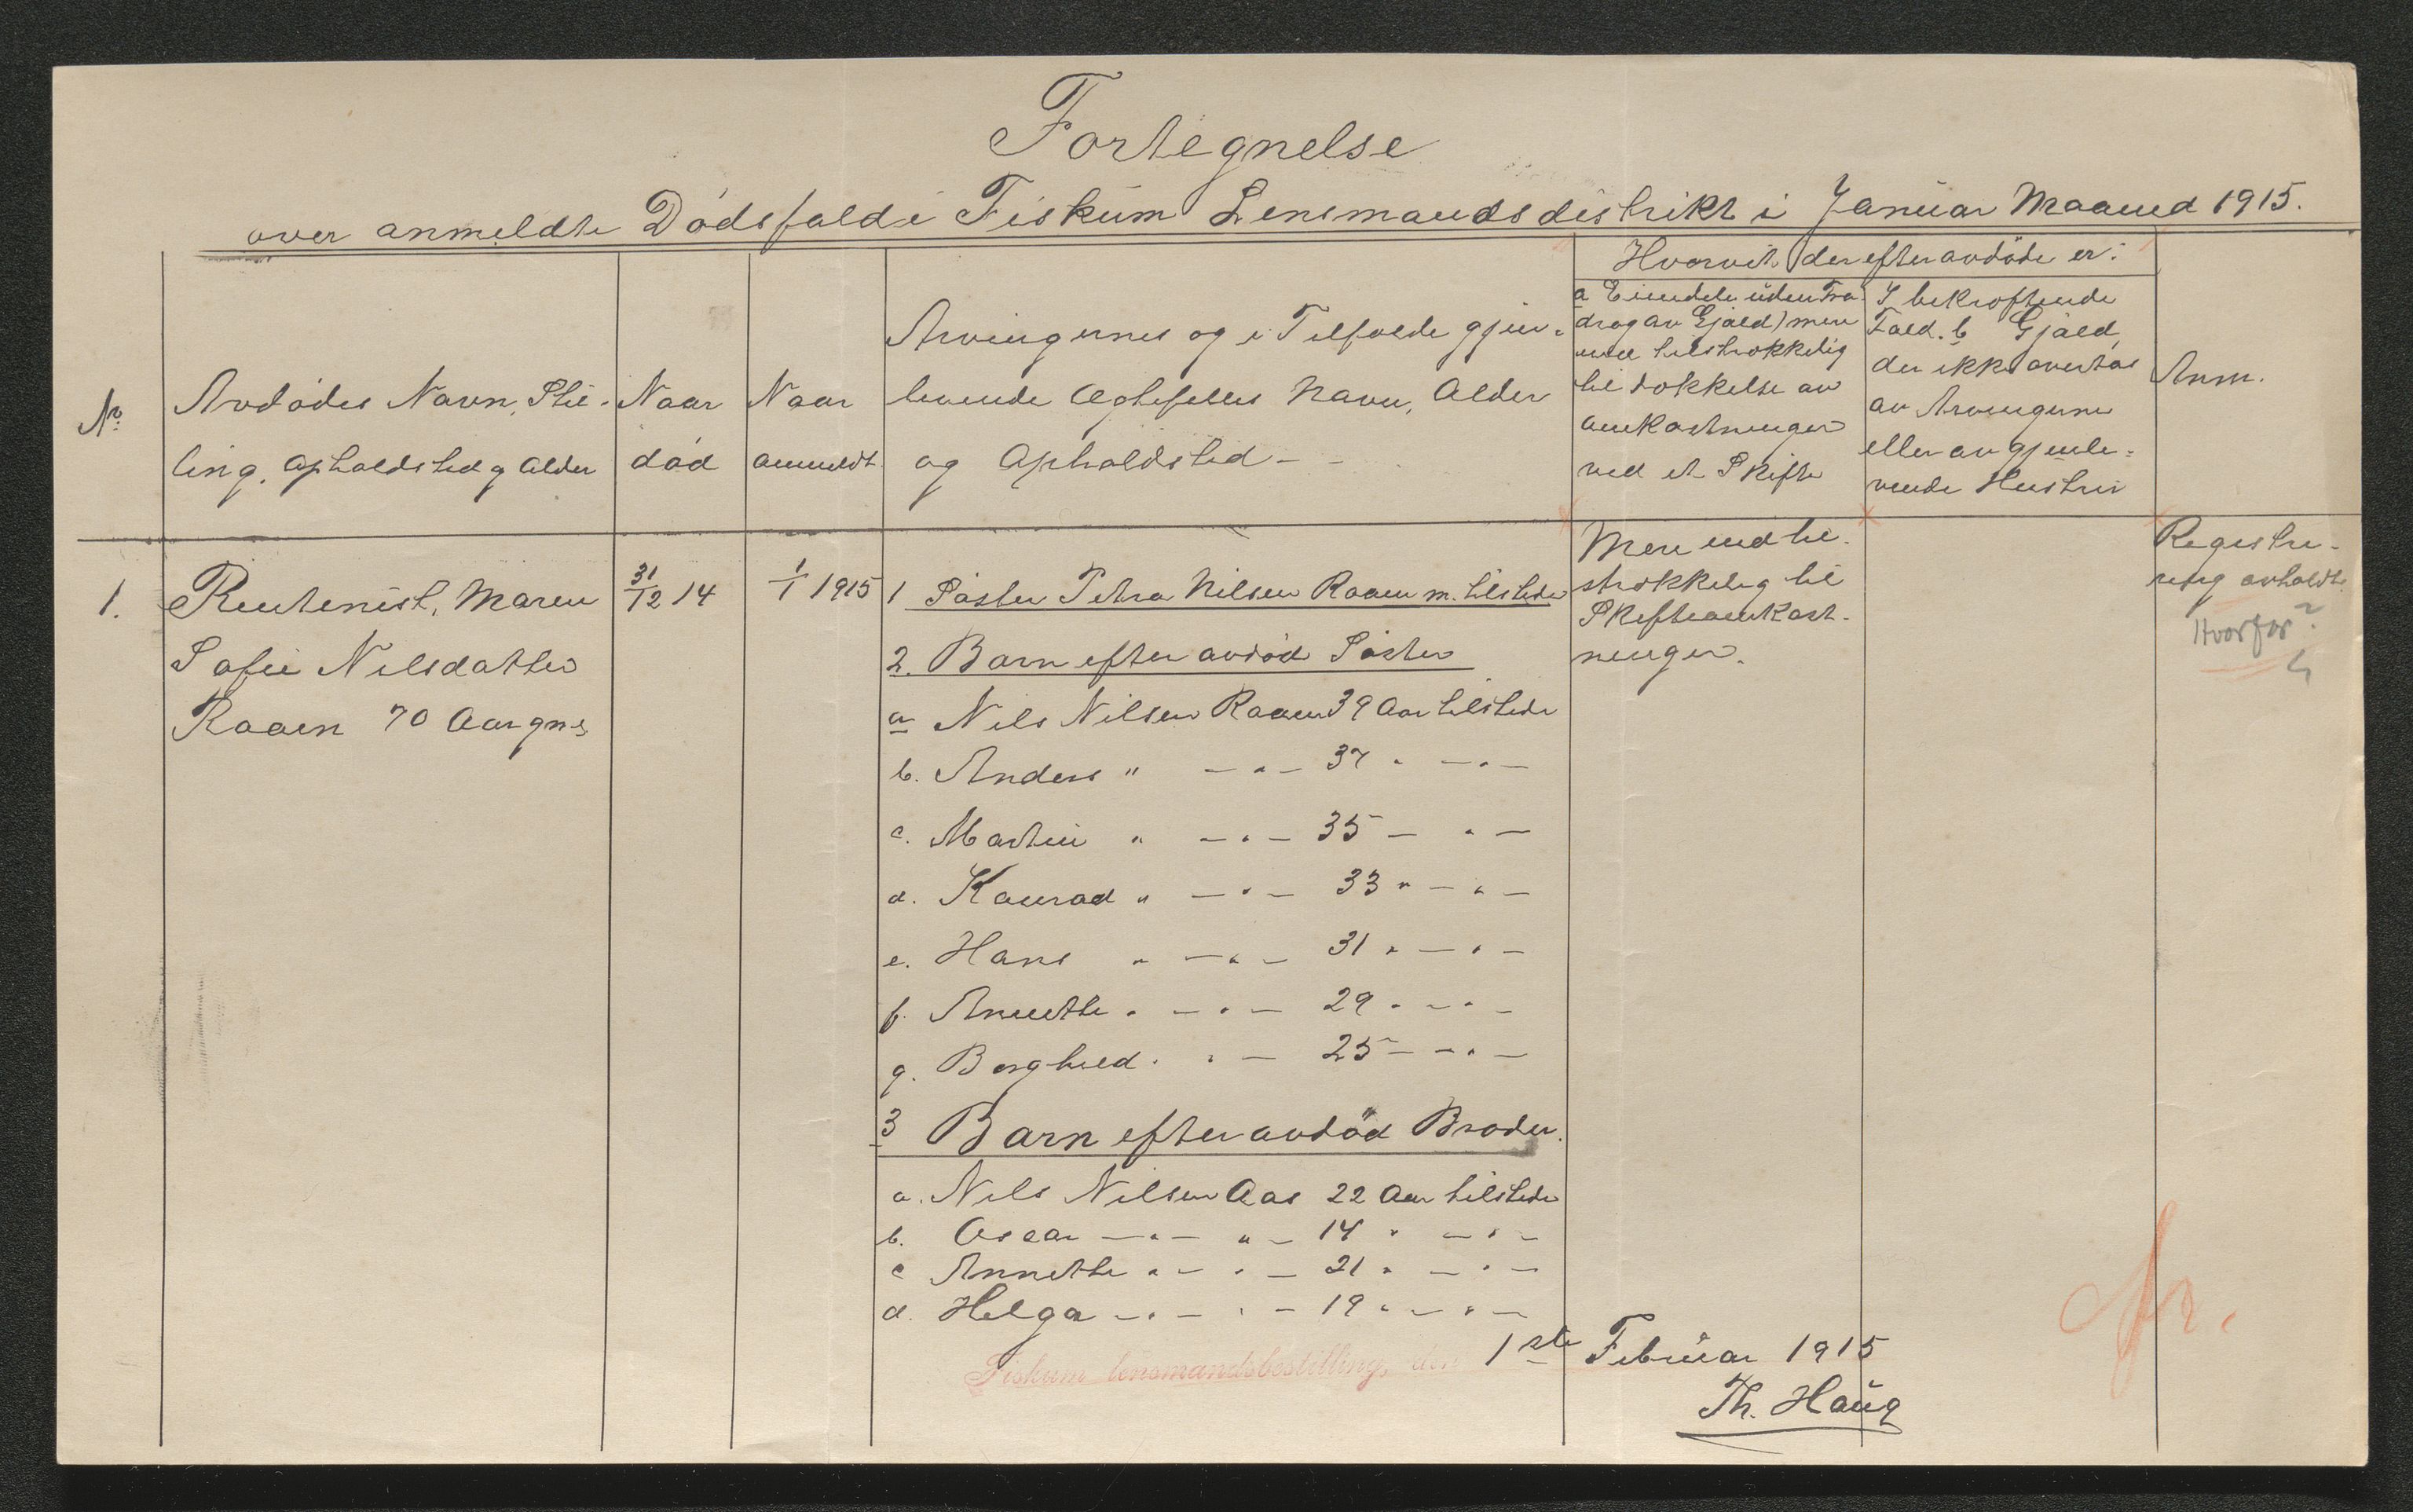 Fortegnelse
over anmeldte Dødsfald i Fiskum Lensmandsdistrikt i Januar Maaned 1915.
Nr.
Avdødes Navn, Stil-
ling, Opholdsted og Alder
Naar
død
Naar
anmeldt.
Arvingernes og i Tilfælde gjen-
levende Ægtefælles Navn, Alder
og Opholdsted - -
Hvorvit der efter avdøde er:
a Eiendele uden Fra-
drag av Gjæld) mere
end tilstrækkelig
til Dækkelse av
omkostninger
ved et Skifte
I bekræftende
Fald. b Gjæld,
der ikke overtas
av Arvingerne
eller av gjenle-
vende Hustru
Anm.
1.
Rentenist, Maren
Sofie Nilsdatter
Raaen 70 Aar gml
31/12 14
1/1 1915
1 Søster Petra Nilsen Raaen m. tilstede
2. Barn efter avdød Søster
a Nils Nilsen Raaen 39 Aar tilstede
b. Anders " — " — 37 " — " —
c. Martin " — " — 35 — " —
d. Konrad " — " — 33 " — " —
e. Hans " — " — 31 " — " —
f. Annethe " — " — 29 " — " —
g. Borghild " " — 25 — — " —
3 Barn efter avdød Broder.
a. Nils Nilsen Aas 22 Aar tilstede
b. Oscar — " — " — 14 " — " —
c Annethe " — " — 21 " — " —
d. Helga — " — " — 19 " — " —
Mere end til-
strækkelig til
Skifteomkost-
ninger.
Registre-
ring avholdt.
Hvorfor?
Fiskum lensmandsbestilling, den 1ste Februar 1915
Th. Haug